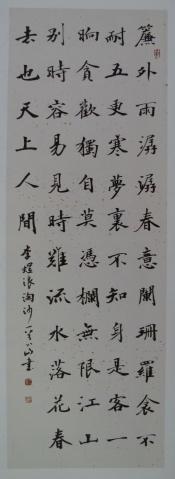 簾外雨潺潺春意闌珊羅衾不
耐五更寒夢裏不知身是客一
晌貪歡獨自莫憑欄無限江山
別時容易見時難流水落花春
去也天上人間
李煜浪淘沙 書